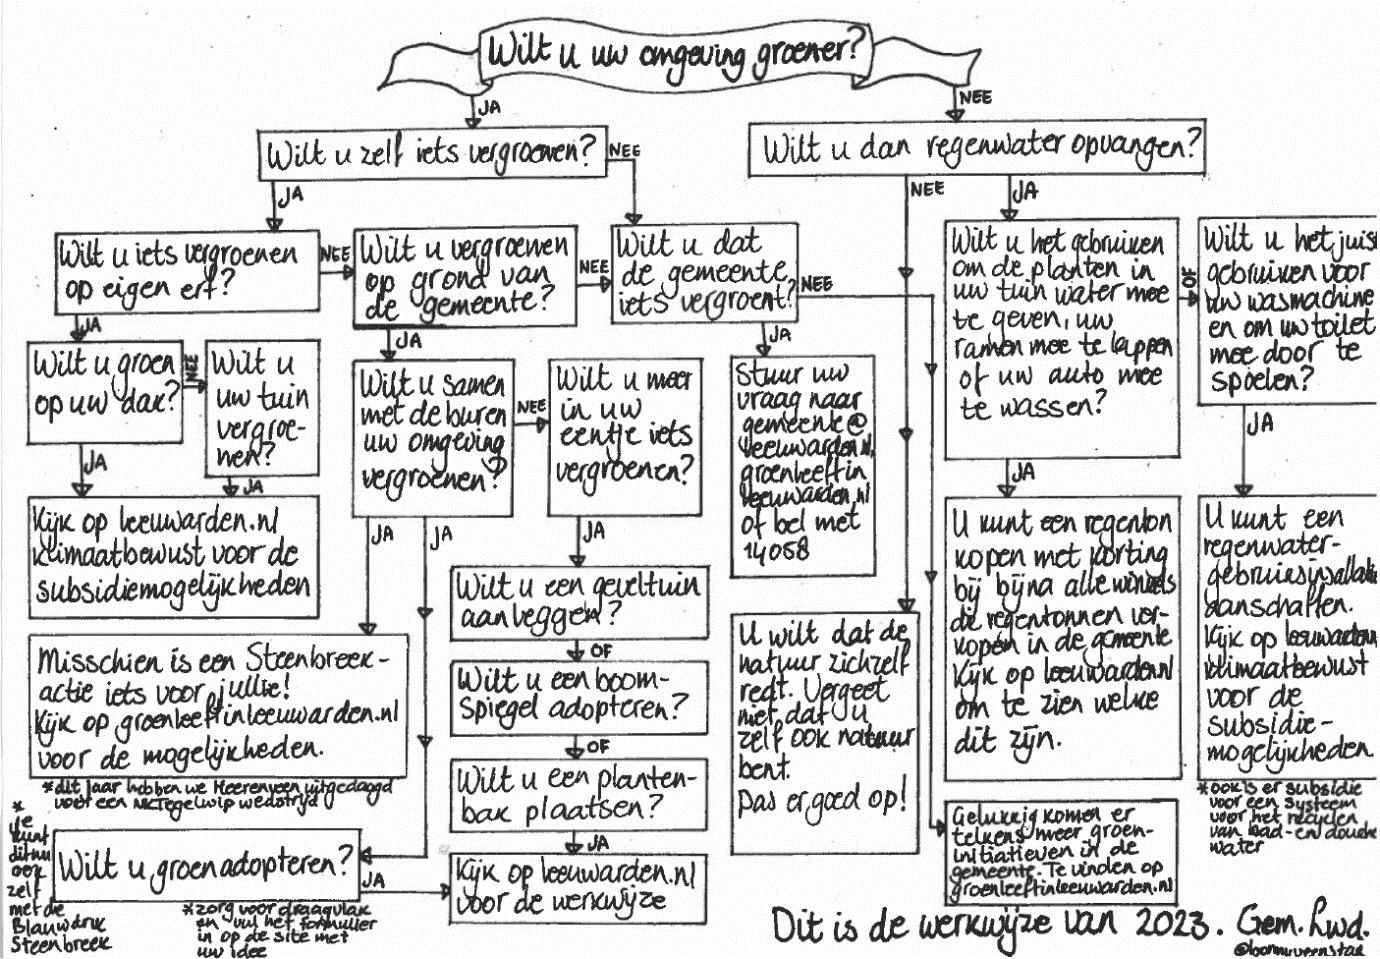 Wilt u uw omgeving groener?
JA
NEE
Wilt u zelf iets vergroenen?
NEE
JA
Wilt u dan regenwater opvangen?
NEE
JA
Wilt u iets vergroenen
op eigen erf?
NEE
JA
Wilt u vergroenen
op grond van
de gemeente?
NEE
JA
Wilt u dat
de gemeente
iets vergroent?
NEE
JA
Wilt u het gebruiken
om de planten in
uw tuin water mee
te geven, uw
ramen mee te lappen
of uw auto mee
te wassen?
OF
JA
Wilt u het juis
gebruiken voor
uw wasmachine
en om uw toilet
mee door te
spoelen?
JA
Wilt u groen
op uw dak?
NEE
JA
Wilt u
uw tuin
vergroe-
nen?
JA
Kijk op leeuwarden.nl
klimaatbewust voor de
subsidiemogelijkheden
Wilt u samen
met de buren
uw omgeving
vergroenen?
NEE
JA
JA
Wilt u meer
in uw
eentje iets
vergroenen?
JA
Stuur uw
vraag naar
gemeente@
leeuwarden.nl,
groenleeftin
leeuwarden.nl
of bel met
14058
Misschien is een Steenbreek-
actie iets voor jullie!
Kijk op groenleeftinleeuwarden.nl
voor de mogelijkheden.
*dit jaar hebben we Heerenveen uitgedaagd
voor een NK Tegelwip wedstrijd
*
Je
kunt
dit nu
ook
zelf
met de
Blauwdruk
Steenbreek
Wilt u groen adopteren?
JA
*zorg voor draagvlak
en vul het formulier
in op de site met
uw idee
Wilt u een geveltuin
aanleggen?
OF
Wilt u een boom-
spiegel adopteren?
OF
Wilt u een planten-
bak plaatsen?
JA
Kijk op leeuwarden.nl
voor de werkwijze
U wilt dat de
natuur zichzelf
redt. Vergeet
niet dat u
zelf ook natuur
bent.
Pas er goed op!
U kunt een regenton
kopen met korting
bij bijna alle winkels
die regentonnen ver-
kopen in de gemeente
Kijk op leeuwarden.nl
om te zien welke
dit zijn.
U kunt een
regenwater-
gebruiksinstallatie
aanschaffen.
Kijk op leeuwarden
klimaatbewust
voor de
subsidie-
mogelijkheden.
*ook is er subsidie
voor een systeem
voor het recyclen
van bad- en douche
water
Gelukkig komen er
telkens meer groen-
initiatieven in de
gemeente. Te vinden op
groenleeftinleeuwarden.nl
Dit is de werkwijze van 2023. Gem. Lwd.